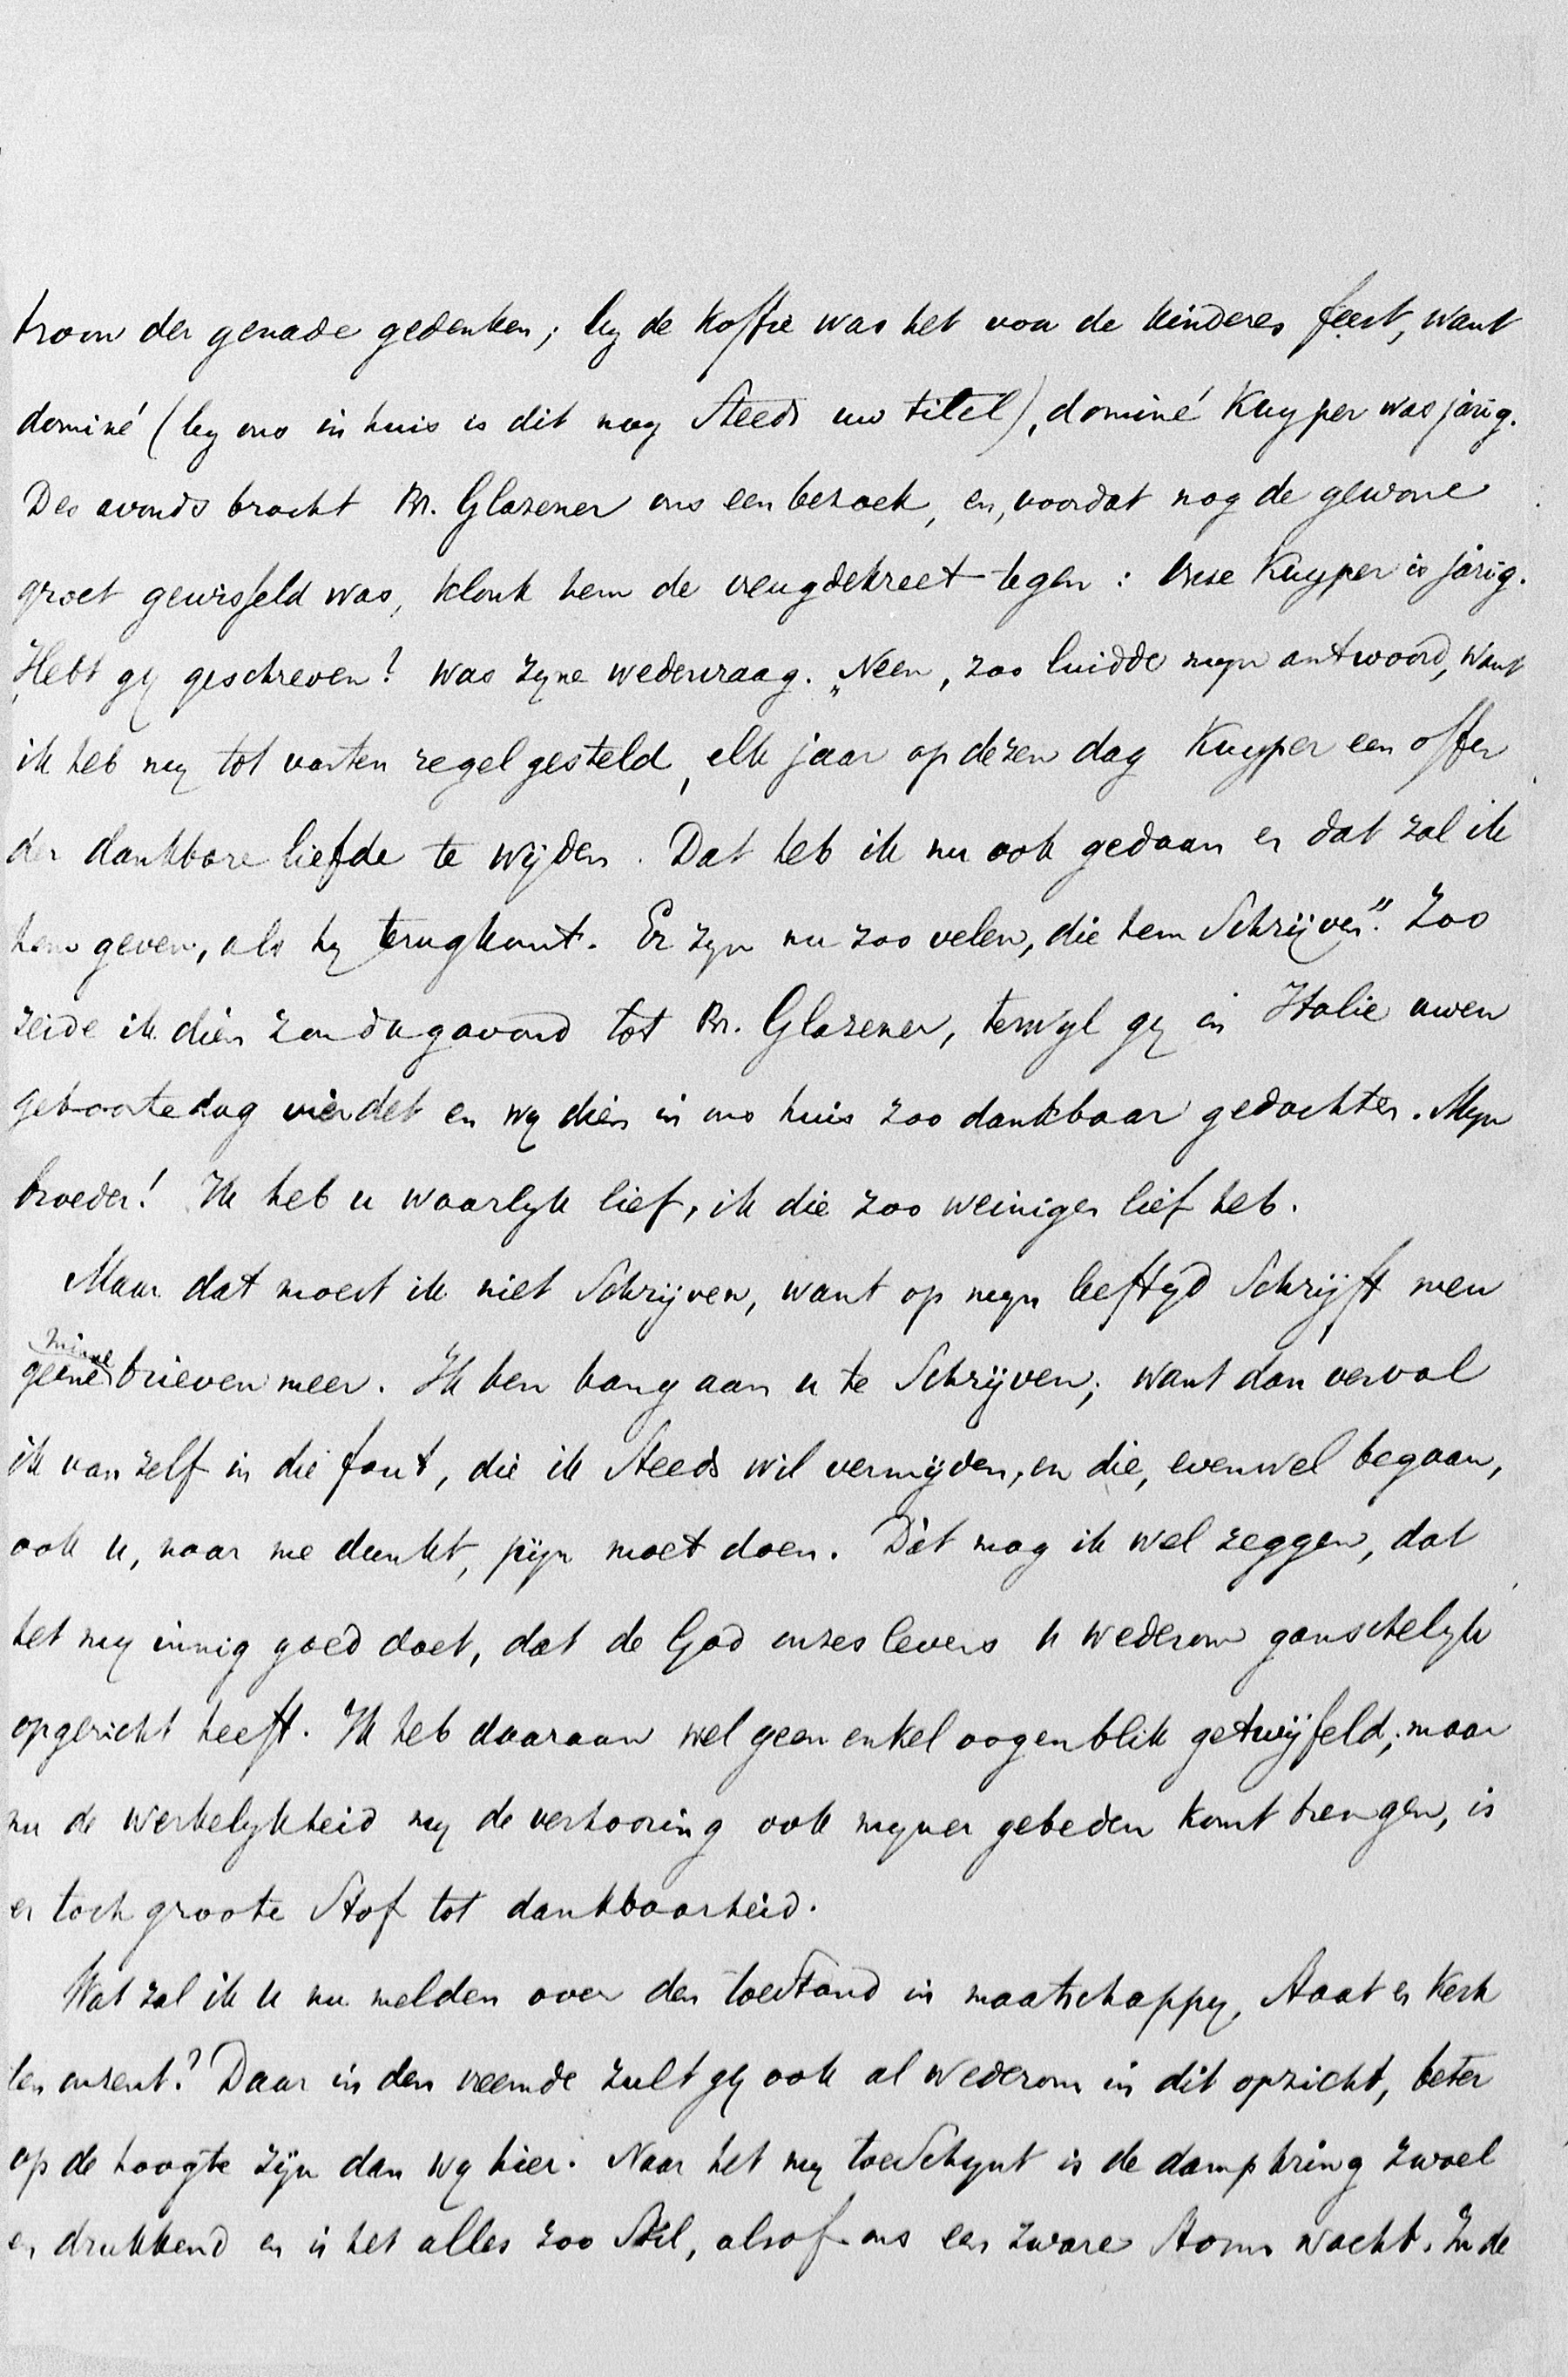 troon der genade gedenken; by de koffie was het voor de kinderen feest, want
dominé (by ons in huis is dit nog steeds uw titel), dominé Kuyper was jarig.
Des avonds bracht Br. Glazener ons een bezoek, en, voordat nog de gewone
groet gewisseld was, klonk hem de vreugdekreet tegen: Onze Kuyper is jarig.
„Hebt gy geschreven? was zyne wedervraag. „Neen, zoo luidde myn antwoord, want
ik heb my tot vasten regel gesteld, elk jaar op dezen dag Kuyper een offer
der dankbare liefde te wijden. Dat heb ik nu ook gedaan en dat zal ik
hem geven, als hy terugkomt. Er zyn nu zoo velen, die hem schrijven". Zoo
zeide ik dien zondagavond tot Br. Glazener, terwyl gy in Italie uwen
geboortedag vierdet en wy dien in ons huis zoo dankbaar gedachten. Myn
broeder! Ik heb u waarlyk lief, ik die zoo weinigen lief heb.
Maar dat moest ik niet schrijven, want op myn leeftyd schrijft men
geene minne brieven meer. Ik ben bang aan u te schrijven; want dan verval
ik van zelf in die fout, die ik steeds wil vermijden, en die, evenwel begaan,
ook u, naar me dunkt, pijn moet doen. Dit mag ik wel zeggen, dat
het my innig goed doet, dat de God onzes levens u wederom ganschelyk
opgericht heeft. Ik heb daaraan wel geen enkel oogenblik getwijfeld; maar
nu de werkelykheid my de verhooring ook myner gebeden komt brengen, is
er toch groote stof tot dankbaarheid.
Wat zal ik u nu melden over den toestand in maatschappy, Staat en Kerk
ten onzent? Daar in den vreemde zult gy ook al wederom in dit opzicht, beter
op de hoogte zijn dan wy hier. Naar het my toeschynt is de dampkring zwoel
en drukkend en is het alles zoo stil, alsof ons een zware storm wacht. In de